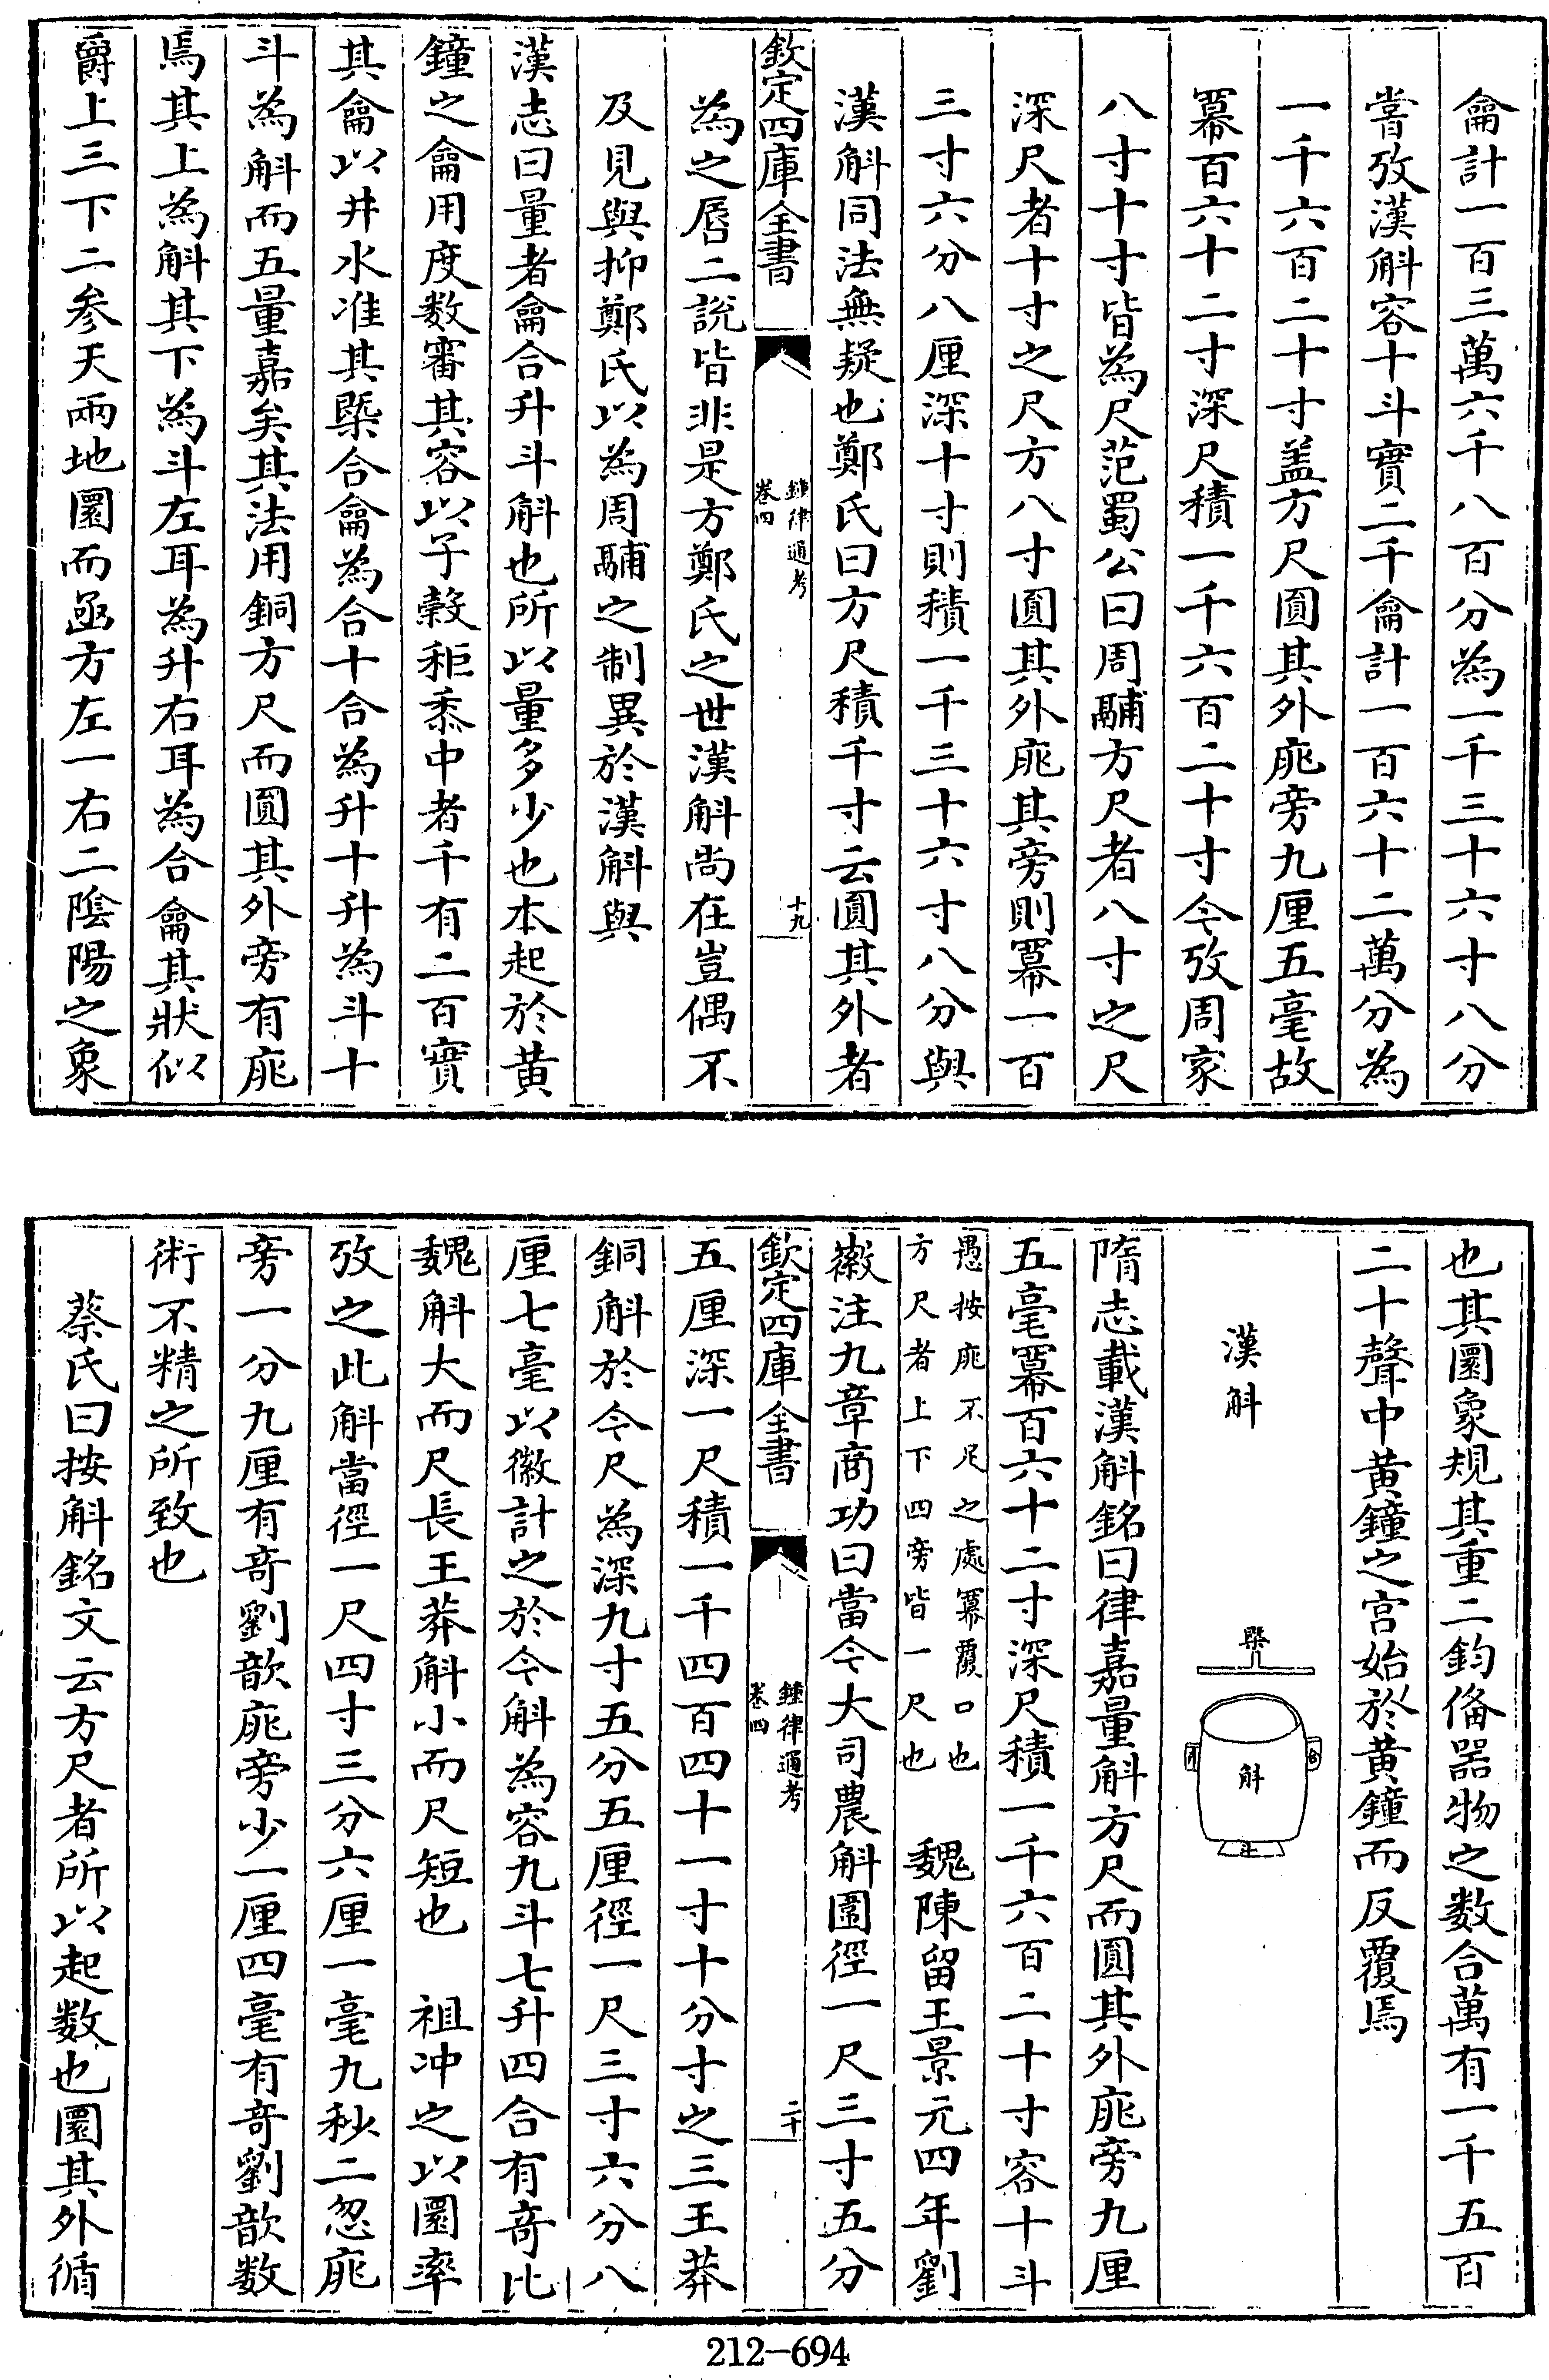 龠計一百三萬六千八百分為一千三十六寸八分
嘗攷漢斛容十斗實二千龠計一百六十二萬分為
一千六百二十寸盖方尺圓其外庣旁九厘五毫故
冪百六十二寸深尺積一千六百二十寸今攷周家
八寸十寸皆為尺范蜀公曰周鬴方尺者八寸之尺
深尺者十寸之尺方八寸圓其外庣其旁則冪一百
三寸六分八厘深十寸則積一千三十六寸八分與
漢斛同法無疑也鄭氏曰方尺積千寸云圓其外者
欽定四庫全書
鍾律通考
卷四
十九
為之唇二說皆非是方鄭氏之世漢斛尚在豈偶不
及見與抑鄭氏以為周鬴之制異於漢斛與
漢志曰量者龠合升斗斛也所以量多少也本起於黄
鐘之龠用度数審其容以子糓秬黍中者千有二百實
其龠以井水准其槩合龠為合十合為升十升為斗十
斗為斛而五量嘉矣其法用銅方尺而圓其外旁有庣
焉其上為斛其下為斗左耳為升右耳為合龠其狀似
爵上三下二参天兩地圜而函方左一右二陰陽之象
也其圜象規其重二鈞俻噐物之数合萬有一千五百
二十聲中黄鐘之宫始於黄鐘而反覆焉
漢斛
槩
升
合
斛
斗
隋志載漢斛銘曰律嘉量斛方尺而圓其外庣旁九厘
五毫冪百六十二寸深尺積一千六百二十寸容十斗
愚按庣不足之處冪覆口也
方尺者上下四旁皆一尺也
魏陳留王景元四年劉
徽注九章商功曰當今大司農斛圓徑一尺三寸五分
欽定四庫全書
鍾律通考
卷四
二十
五厘深一尺積一千四百四十一寸十分寸之三王莽
銅斛於今尺為深九寸五分五厘徑一尺三寸六分八
厘七毫以徽計之於今斛為容九斗七升四合有竒比
魏斛大而尺長王莽斛小而尺短也 祖冲之以圜率
攷之此斛當徑一尺四寸三分六厘一毫九秒二忽庣
旁一分九厘有竒劉歆庣旁少一厘四毫有竒劉歆数
術不精之所致也
蔡氏曰按斛銘文云方尺者所以起数也圜其外循
212-694